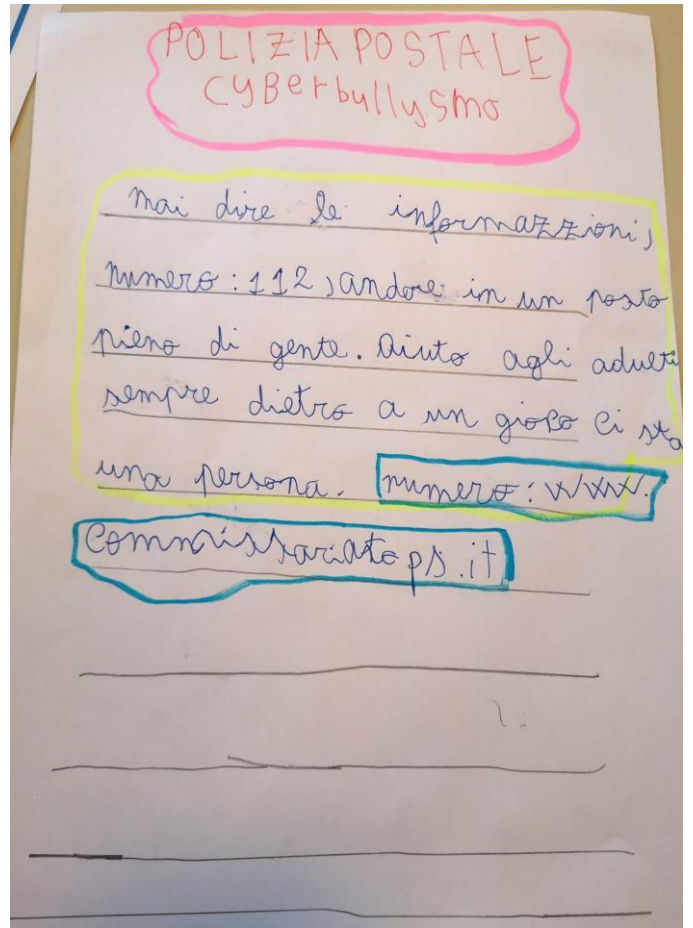 POLIZIA POSTALE
CYBerbullysmo
Mai dire le informazzioni,
numero: 112, andare in un posto
pieno di gente. Aiuto agli adulti
sempre dietro a un gioco ci sta
una persona. numero: www.
commissariatops.it